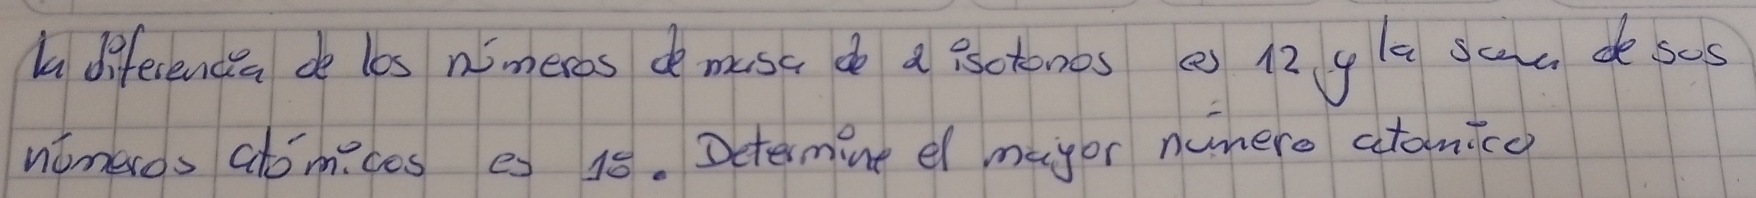 la diferencia de los números de masa de 2 isotonos es 12, y la suma de sus
números atómicos es 18. Determine el mayor número atomico